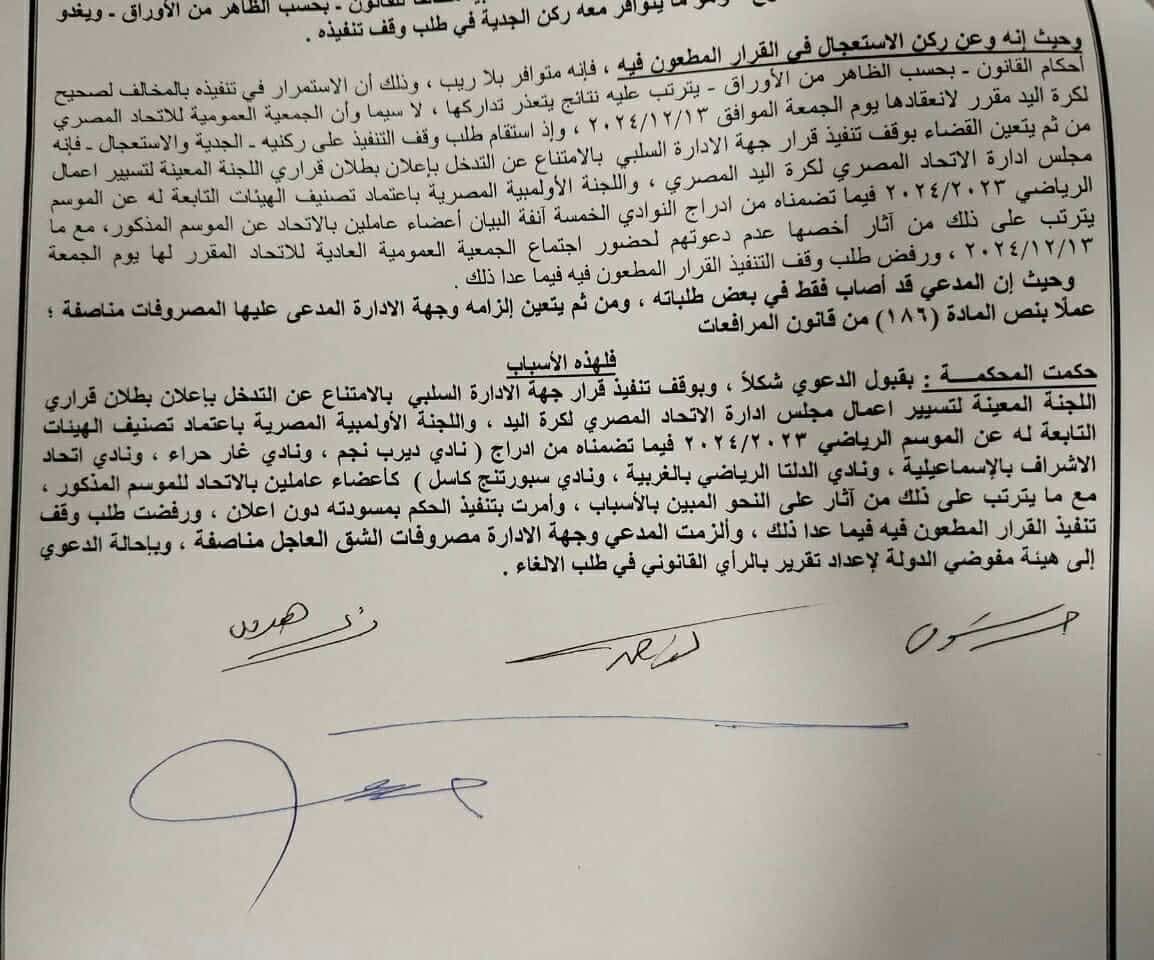 للقانون - بحسب الظاهر من الأوراق - ويغدو
يتوافر معه ركن الجدية في طلب وقف تنفيذه .
وحيث إنه وعن ركن الاستعجال في القرار المطعون فيه ، فإنه متوافر بلا ريب ، وذلك أن الاستمرار في تنفيذه بالمخالف لصحيح
أحكام القانون - بحسب الظاهر من الأوراق - يترتب عليه نتائج يتعذر تداركها ، لا سيما وأن الجمعية العمومية للاتحاد المصري
لكرة اليد مقرر لانعقادها يوم الجمعة الموافق ٢٠٢٤/١٢/١٣ ، وإذ استقام طلب وقف التنفيذ على ركنيه - الجدية والاستعجال - فإنه
من ثم يتعين القضاء بوقف تنفيذ قرار جهة الادارة السلبي بالامتناع عن التدخل بإعلان بطلان قراري اللجنة المعينة لتسيير اعمال
مجلس ادارة الاتحاد المصري لكرة اليد المصري ، واللجنة الأولمبية المصرية باعتماد تصنيف الهيئات التابعة له عن الموسم
الرياضي ٢٠٢٤/٢٠٢٣ فيما تضمناه من ادراج النوادي الخمسة آنفة البيان أعضاء عاملين بالاتحاد عن الموسم المذكور، مع ما
يترتب على ذلك من آثار أخصها عدم دعوتهم لحضور اجتماع الجمعية العمومية العادية للاتحاد المقرر لها يوم الجمعة
٢٠٢٤/١٢/١٣ ، ورفض طلب وقف التنفيذ القرار المطعون فيه فيما عدا ذلك .
وحيث إن المدعي قد أصاب فقط في بعض طلباته ، ومن ثم يتعين إلزامه وجهة الادارة المدعى عليها المصروفات مناصفة ؛
عملًا بنص المادة (١٨٦) من قانون المرافعات
فلهذه الأسباب
حكمت المحكمـــة : بقبول الدعوي شكلاً ، وبوقف تنفيذ قرار جهة الادارة السلبي بالامتناع عن التدخل بإعلان بطلان قراري
اللجنة المعينة لتسيير اعمال مجلس ادارة الاتحاد المصري لكرة اليد ، واللجنة الأولمبية المصرية باعتماد تصنيف الهيئات
التابعة له عن الموسم الرياضي ٢٠٢٤/٢٠٢٣ فيما تضمناه من ادراج ( نادي ديرب نجم ، ونادي غار حراء ، ونادي اتحاد
الاشراف بالإسماعيلية ، ونادي الدلتا الرياضي بالغربية ، ونادي سبورتنج كاسل ) كأعضاء عاملين بالاتحاد للموسم المذكور ،
مع ما يترتب على ذلك من آثار على النحو المبين بالأسباب ، وأمرت بتنفيذ الحكم بمسودته دون اعلان ، ورفضت طلب وقف
تنفيذ القرار المطعون فيه فيما عدا ذلك ، وألزمت المدعي وجهة الادارة مصروفات الشق العاجل مناصفة ، وبإحالة الدعوي
إلى هيئة مفوضي الدولة لإعداد تقرير بالرأي القانوني في طلب الالغاء .